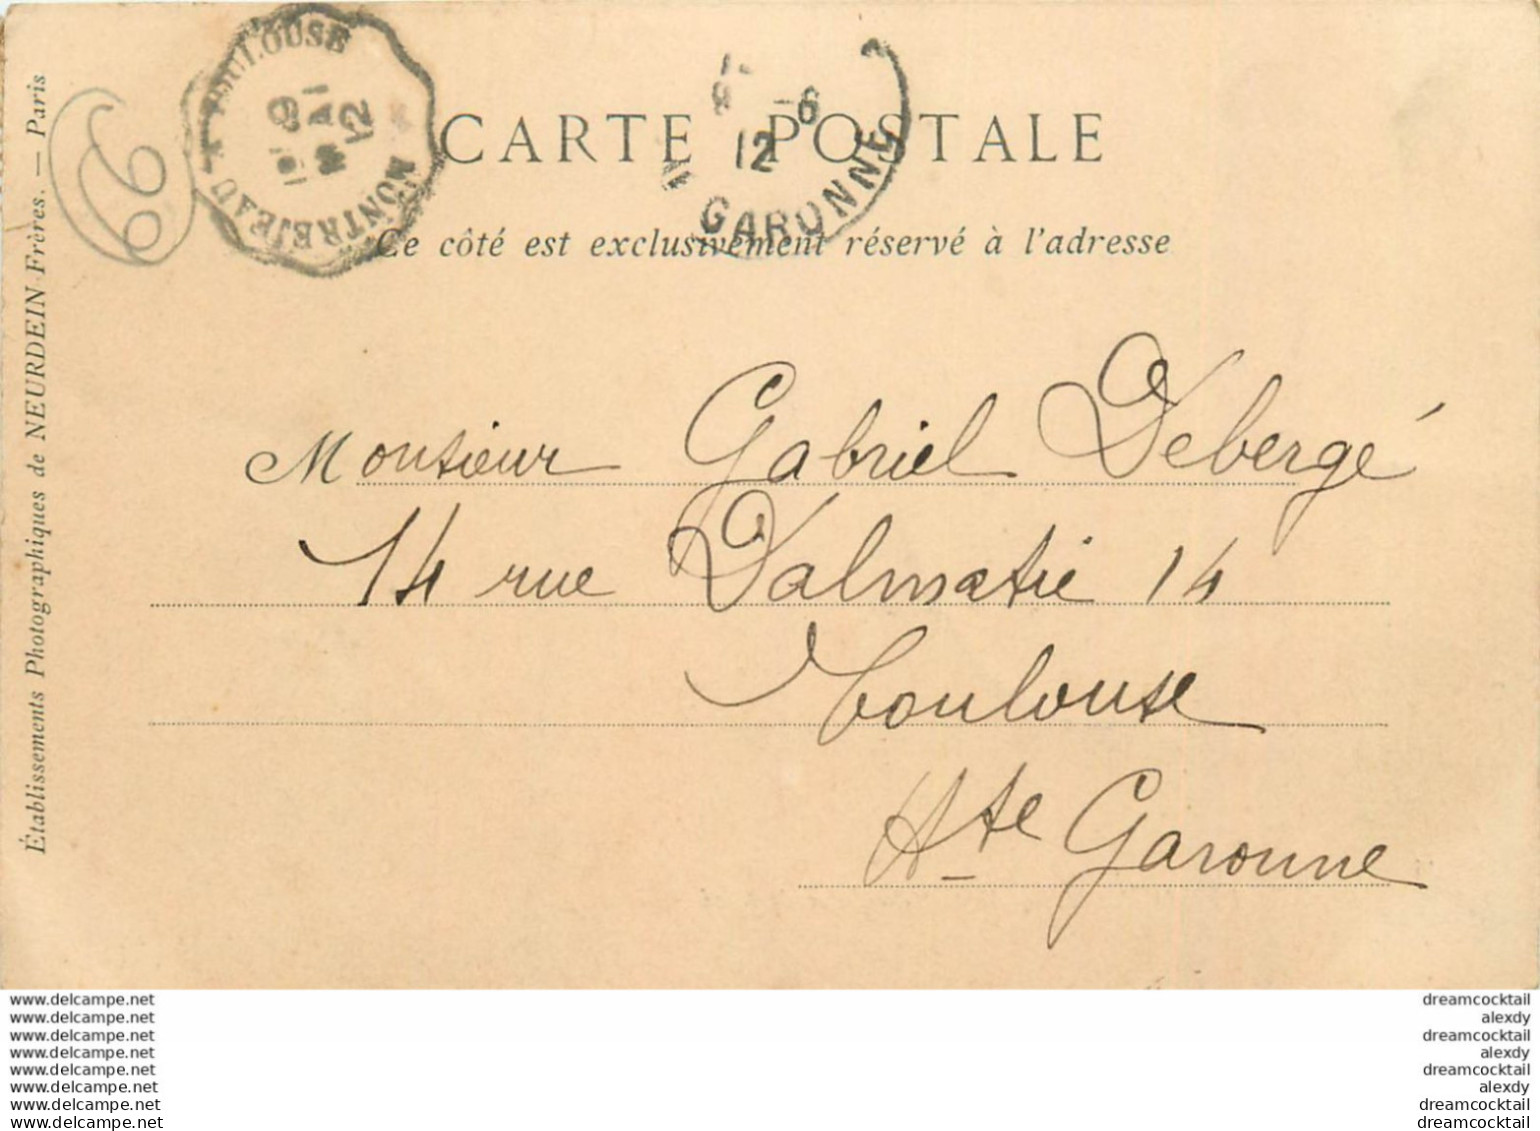 CARTE POSTALE
Ce côté est exclusivement réservé à l'adresse
TOULOUSE
MONTREJEAU
12
GARONNE
Monsieur Gabriel Debergé
14 rue Dalmatie 14
Toulouse
Hte Garonne
Établissements Photographiques de NEURDEIN Frères. — Paris
www.delcampe.net
www.delcampe.net
www.delcampe.net
www.delcampe.net
www.delcampe.net
www.delcampe.net
www.delcampe.net
www.delcampe.net
dreamcocktail
alexdy
dreamcocktail
alexdy
dreamcocktail
alexdy
dreamcocktail
dreamcocktail